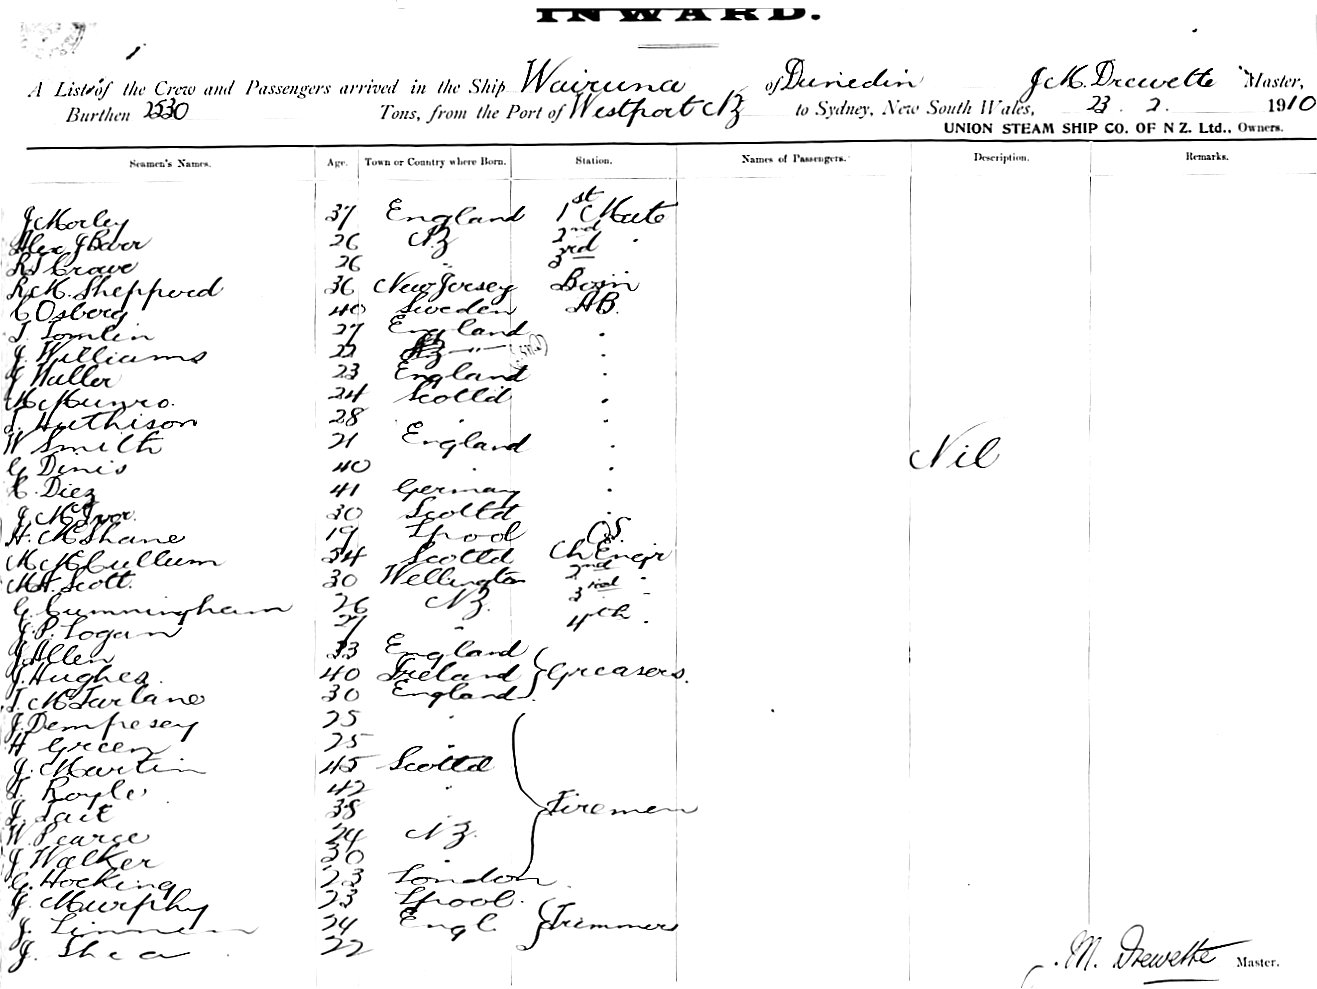 INWARD.
A List of the Crew and Passengers arrived in the Ship Wairuna of Dunedin J M. Drewette Master,
Burthen 2530 Tons, from the Port of Westport NZ to Sydney, New South Wales, 23 . 2. 1910
UNION STEAM SHIP CO. OF N Z. Ltd., Owners.
Seamen's Names. Age. Town or Country where Born. Station. Names of Passengers. Description. Remarks.
J Morley 37 England 1st Mate
Alex J 26 NZ 2nd "
26 " 3rd
R. M. Shepperd 36 New Jersey Bosn
C Osberg 40 Sweden AB.
T. Tomlin 27 England "
J. Williams 22 NZ "
J Waller 23 England "
M. Munro. 24 Scotld "
T. Huthison 28 " "
W Smith 21 England "
G Denis 40 " "
Nil
C. Diez 41 Germany "
J. McIvor. 30 Scotld "
H. McShane 19 Lpool O.S.
M McCullum 34 Scotld Ch Engr
M. H. Scott. 30 Wellington 2nd "
G. Cunningham 26 NZ. 3rd "
J. P. Logan 27 " 4th "
J Allen 33 England
J. Hughes. 40 Ireland Greasers.
T. McFarlane 30 England
J. Dempsesy 25 "
H Green 25 "
J. Martin 45 Scotld
T. Royle 42 "
J. Tait 38 Firemen
W. Pearce 24 NZ.
J Walker 30
G. Hocking 23 London
J. Murphy 23 Lpool.
J. 24 Engl. Trimmers
J. Shea 22
J. M. Drewette Master.